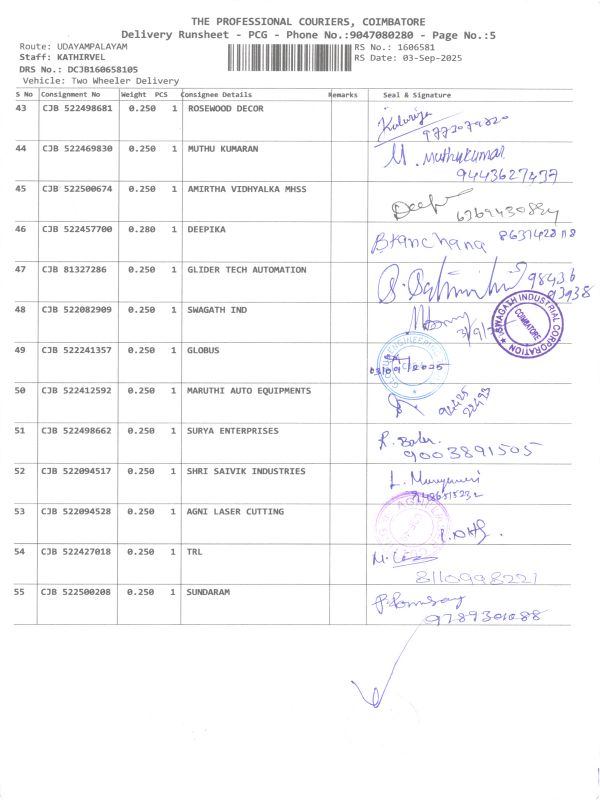 THE PROFESSIONAL COURIERS, COIMBATORE
Delivery Runsheet - PCG - Phone No.:9047080280 - Page No.:5
Route: UDAYAMPALAYAM RS No.: 1606581
Staff: KATHIRVEL RS Date: 03-Sep-2025
DRS No.: DCJB160658105
Vehicle: Two Wheeler Delivery
S No Consignment No Weight PCS Consignee Details Remarks Seal & Signature
43 CJB 522498681 0.250 1 ROSEWOOD DECOR
44 CJB 522469830 0.250 1 MUTHU KUMARAN M. Muthukumar
9443627477
45 CJB 522500674 0.250 1 AMIRTHA VIDHYALKA MHSS Deepa
46 CJB 522457700 0.280 1 DEEPIKA
47 CJB 81327286 0.250 1 GLIDER TECH AUTOMATION
48 CJB 522082909 0.250 1 SWAGATH IND SWAGATH INDUSTRIAL CORPORATION COIMBATORE
49 CJB 522241357 0.250 1 GLOBUS
03/09/2025
50 CJB 522412592 0.250 1 MARUTHI AUTO EQUIPMENTS
51 CJB 522498662 0.250 1 SURYA ENTERPRISES
9003891505
52 CJB 522094517 0.250 1 SHRI SAIVIK INDUSTRIES
53 CJB 522094528 0.250 1 AGNI LASER CUTTING
54 CJB 522427018 0.250 1 TRL
8110998221
55 CJB 522500208 0.250 1 SUNDARAM